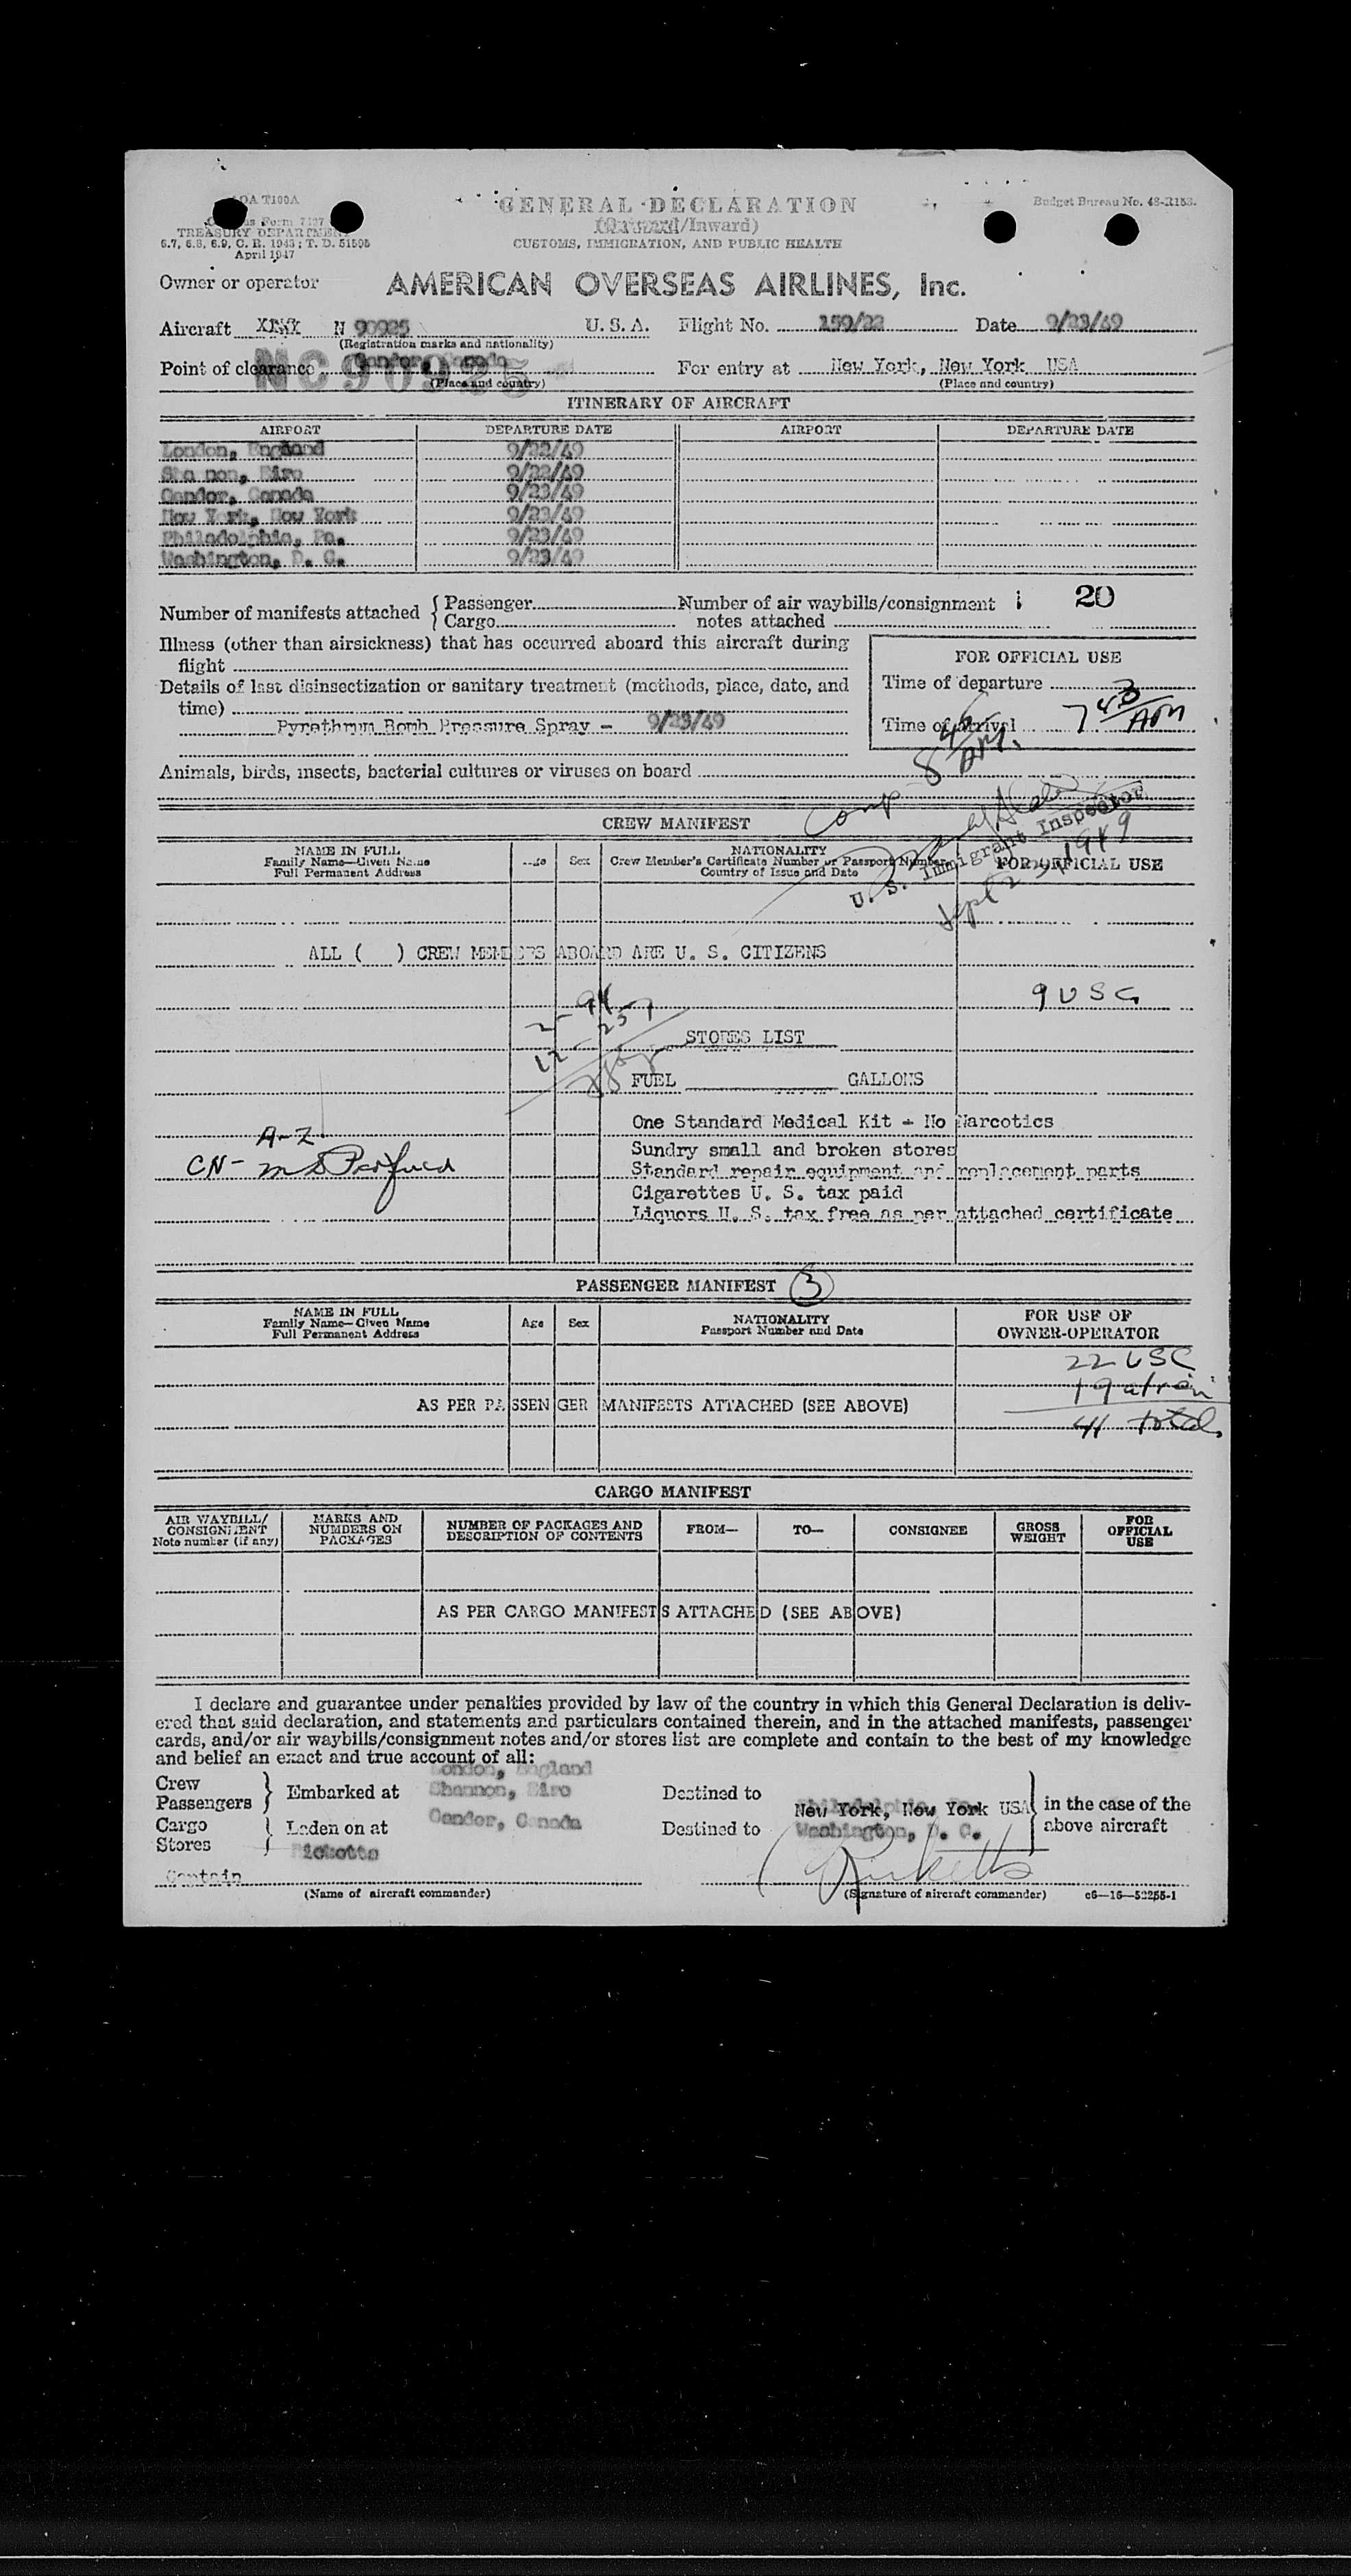 AOA T100A
Customs Form 7507
TREASURY DEPARTMENT
6.7, 6.8, 6.9, C. R. 1943; T. D. 51505
April 1947
GENERAL DECLARATION
(Outward/Inward)
CUSTOMS, IMMIGRATION, AND PUBLIC HEALTH
Budget Bureau No. 48-R153.
Owner or operator AMERICAN OVERSEAS AIRLINES, Inc.
Aircraft N 90925 U. S. A. Flight No. 159/22 Date 9/23/49
(Registration marks and nationality)
NC90925
Point of clearance Gander, Canada For entry at New York, New York USA
(Place and country) (Place and country)
ITINERARY OF AIRCRAFT
AIRPORT DEPARTURE DATE AIRPORT DEPARTURE DATE
London, England 9/22/49
Shannon, Eire 9/22/49
Gander, Canada 9/23/49
New York, New York 9/23/49
Philadelphia, Pa. 9/23/49
Washington, D. C. 9/23/49
Number of manifests attached { Passenger Number of air waybills/consignment 20
Cargo notes attached
Illness (other than airsickness) that has occurred aboard this aircraft during
flight
Details of last disinsectization or sanitary treatment (methods, place, date, and
time)
Pyrethrum Bomb Pressure Spray - 9/23/49
FOR OFFICIAL USE
Time of departure
Time of arrival 7 43 AM
Comp 8 45 AM.
Animals, birds, insects, bacterial cultures or viruses on board
U. S. Immigrant Inspector
Sept 23, 1949
CREW MANIFEST
NAME IN FULL
Family Name—Given Name
Full Permanent Address
Age Sex
NATIONALITY
Crew Member's Certificate Number or Passport Number
Country of Issue and Date
FOR OFFICIAL USE
ALL ( ) CREW MEMBERS ABOARD ARE U. S. CITIZENS
9 USC
STORES LIST
FUEL GALLONS
One Standard Medical Kit - No Narcotics
Sundry small and broken stores
Standard repair equipment and replacement parts
Cigarettes U. S. tax paid
Liquors U. S. tax free as per attached certificate
A-Z
CN-
PASSENGER MANIFEST 3
NAME IN FULL
Family Name—Given Name
Full Permanent Address
Age Sex
NATIONALITY
Passport Number and Date
FOR USE OF
OWNER-OPERATOR
22 USC
19 alien
41 total.
AS PER PASSENGER MANIFESTS ATTACHED (SEE ABOVE)
CARGO MANIFEST
AIR WAYBILL/
CONSIGNMENT
Note number (if any)
MARKS AND
NUMBERS ON
PACKAGES
NUMBER OF PACKAGES AND
DESCRIPTION OF CONTENTS
FROM— TO— CONSIGNEE
GROSS
WEIGHT
FOR
OFFICIAL
USE
AS PER CARGO MANIFESTS ATTACHED (SEE ABOVE)
I declare and guarantee under penalties provided by law of the country in which this General Declaration is deliv-
ered that said declaration, and statements and particulars contained therein, and in the attached manifests, passenger
cards, and/or air waybills/consignment notes and/or stores list are complete and contain to the best of my knowledge
and belief an exact and true account of all:
London, England
Crew
Passengers } Embarked at Shannon, Eire Destined to Philadelphia, Pa.
New York, New York USA } in the case of the
Cargo
Stores } Laden on at Gander, Canada Destined to Washington, D. C. above aircraft
Ricketts
Captain
Ricketts
(Name of aircraft commander) (Signature of aircraft commander) c6—16—52255-1